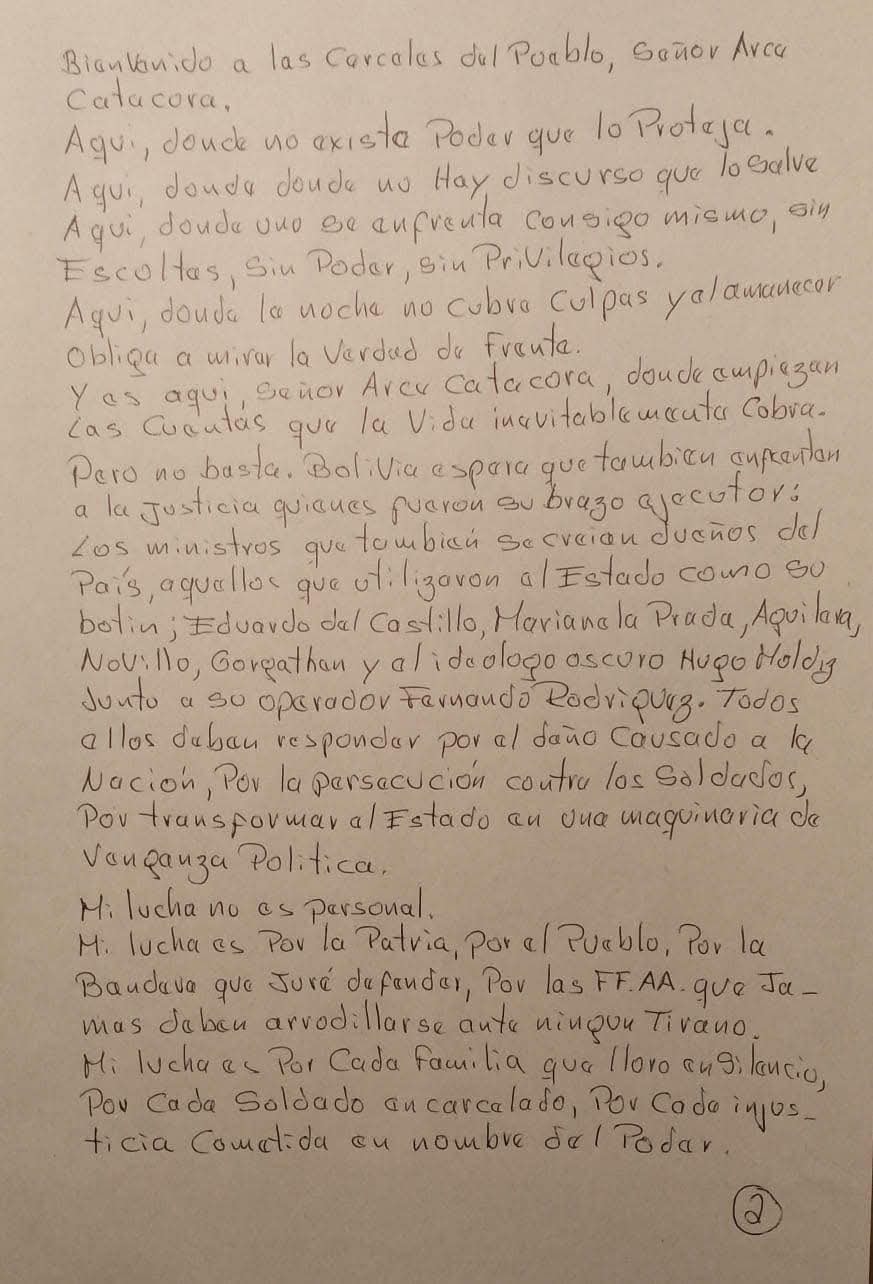 Bienvenido a las Carceles del Pueblo, Señor Arce
Catacora.
Aqui, donde no existe Poder que lo Proteja.
Aqui, donde donde no Hay discurso que lo salve
Aqui, donde uno se enfrenta consigo mismo, sin
Escoltas, Sin Poder, sin Privilegios.
Aqui, donde la noche no cubre culpas y al amanecer
Obliga a mirar la Verdad de Frente.
Y es aqui, Señor Arce Catacora, donde empiezan
Las Cuentas que la Vida inevitablemente Cobra.
Pero no basta. Bolivia espera que tambien enfrentan
a la Justicia quienes fueron su brazo ejecutor:
Los ministros que tambien se creian dueños del
País, aquellos que utilizaron al Estado como su
botin; Eduardo del Castillo, Mariane la Prada, Aquilera,
Novillo, Gorgathan y al ideologo oscuro Hugo Moldiz
Junto a su operador Fernando Rodriguez. Todos
ellos deben responder por el daño Causado a la
Nación, Por la persecución contra los Soldados,
Por transformar al Estado en una maquinaria de
Venganza Politica.
Mi lucha no es personal.
Mi lucha es Por la Patria, por el Pueblo, Por la
Bandera que Juré defender, Por las FF.AA. que Ja-
mas deben arrodillarse ante ningun Tirano.
Mi lucha es Por Cada Familia que lloro en Silencio,
Por Cada Soldado encarcelado, Por Cada injus-
ticia Cometida en nombre del Poder.
2